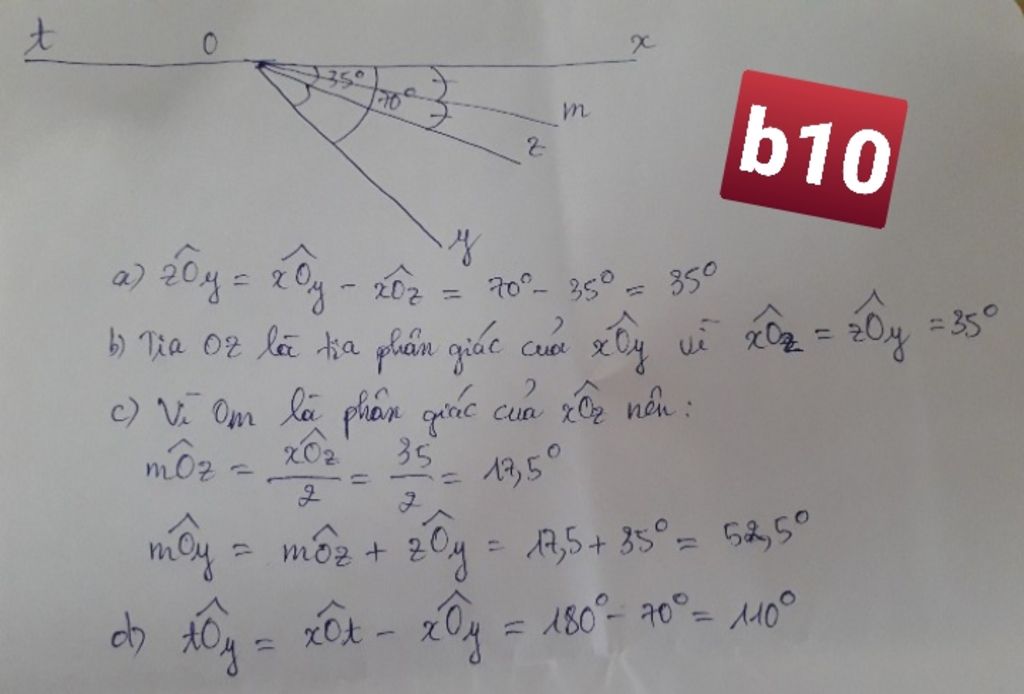 t O x
35° 70° m
z
y
b10
a) zÔy = xÔy - xÔz = 70° - 35° = 35°
b) Tia Oz là tia phân giác của xÔy vì xÔz = zÔy = 35°
c) Vì Om là phân giác của xÔz nên:
mÔz = xÔz/2 = 35/2 = 17,5°
mÔy = mÔz + zÔy = 17,5 + 35° = 52,5°
d) tÔy = xÔt - xÔy = 180° - 70° = 110°